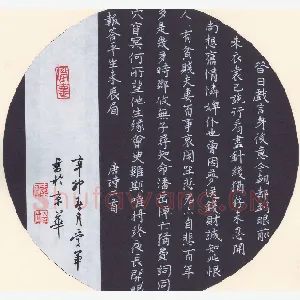 昔日戲言身後意今朝都到眼前
来衣裳已施行看盡針綫猶存未忍開
尚想舊情憐婢仆也曾因夢送錢財誠知此恨
人人有貧賤夫妻百事哀閑坐悲君亦自悲百年
多是幾多時鄧攸無子尋知命潘岳悼亡猶費詞同
穴窅冥何所望他生緣會更難期唯將終夜長開眼
報答平生未展眉 唐詩二首
辛卯春月愛軍
書於京華